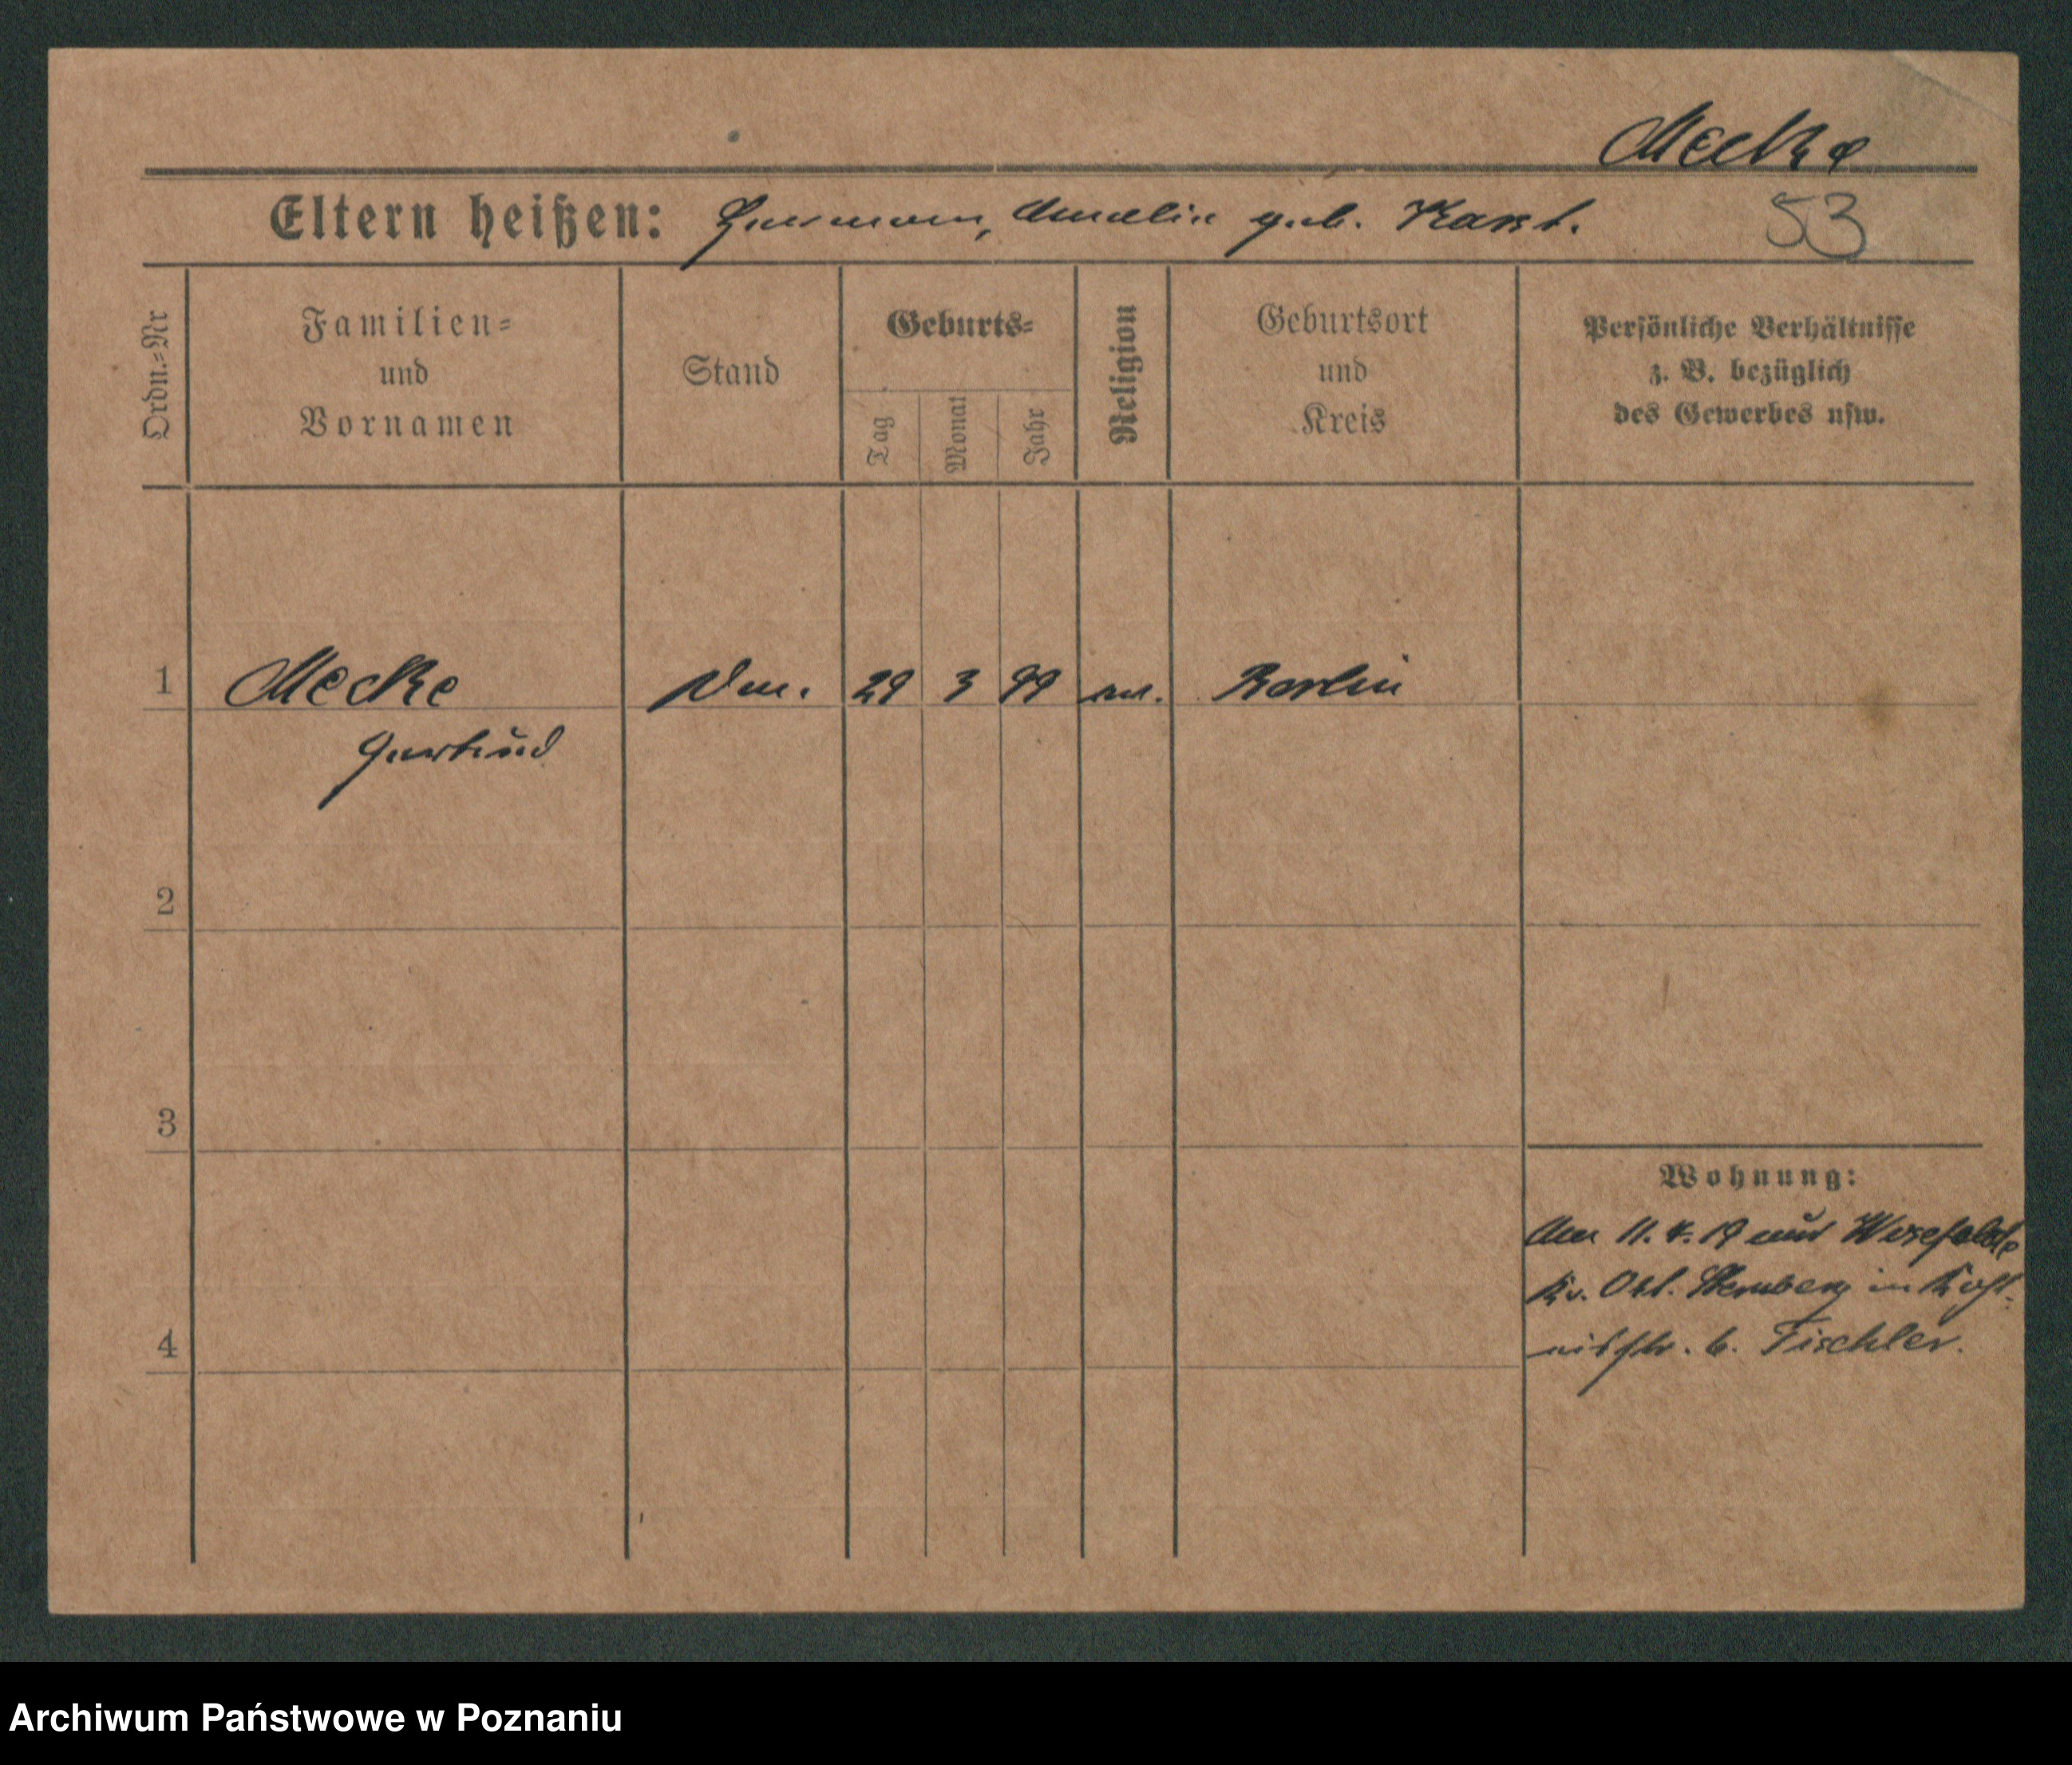 Mecke
Eltern heißen: Hermann, Amalie geb. Karst.
53
Ordn.=Nr
Familien=
und
Vornamen
Stand
Geburts=
Tag
Monat
Jahr
Religion
Geburtsort
und
Kreis
Persönliche Verhältnisse
z. B. bezüglich
des Gewerbes usw.
1 Mecke 29 3 99 ev. Berlin
Gertrud
2
3
4
Wohnung:
Am 11. 4. 19 aus
Kr. Ost. Sternberg in
b. Fischler.
Archiwum Państwowe w Poznaniu